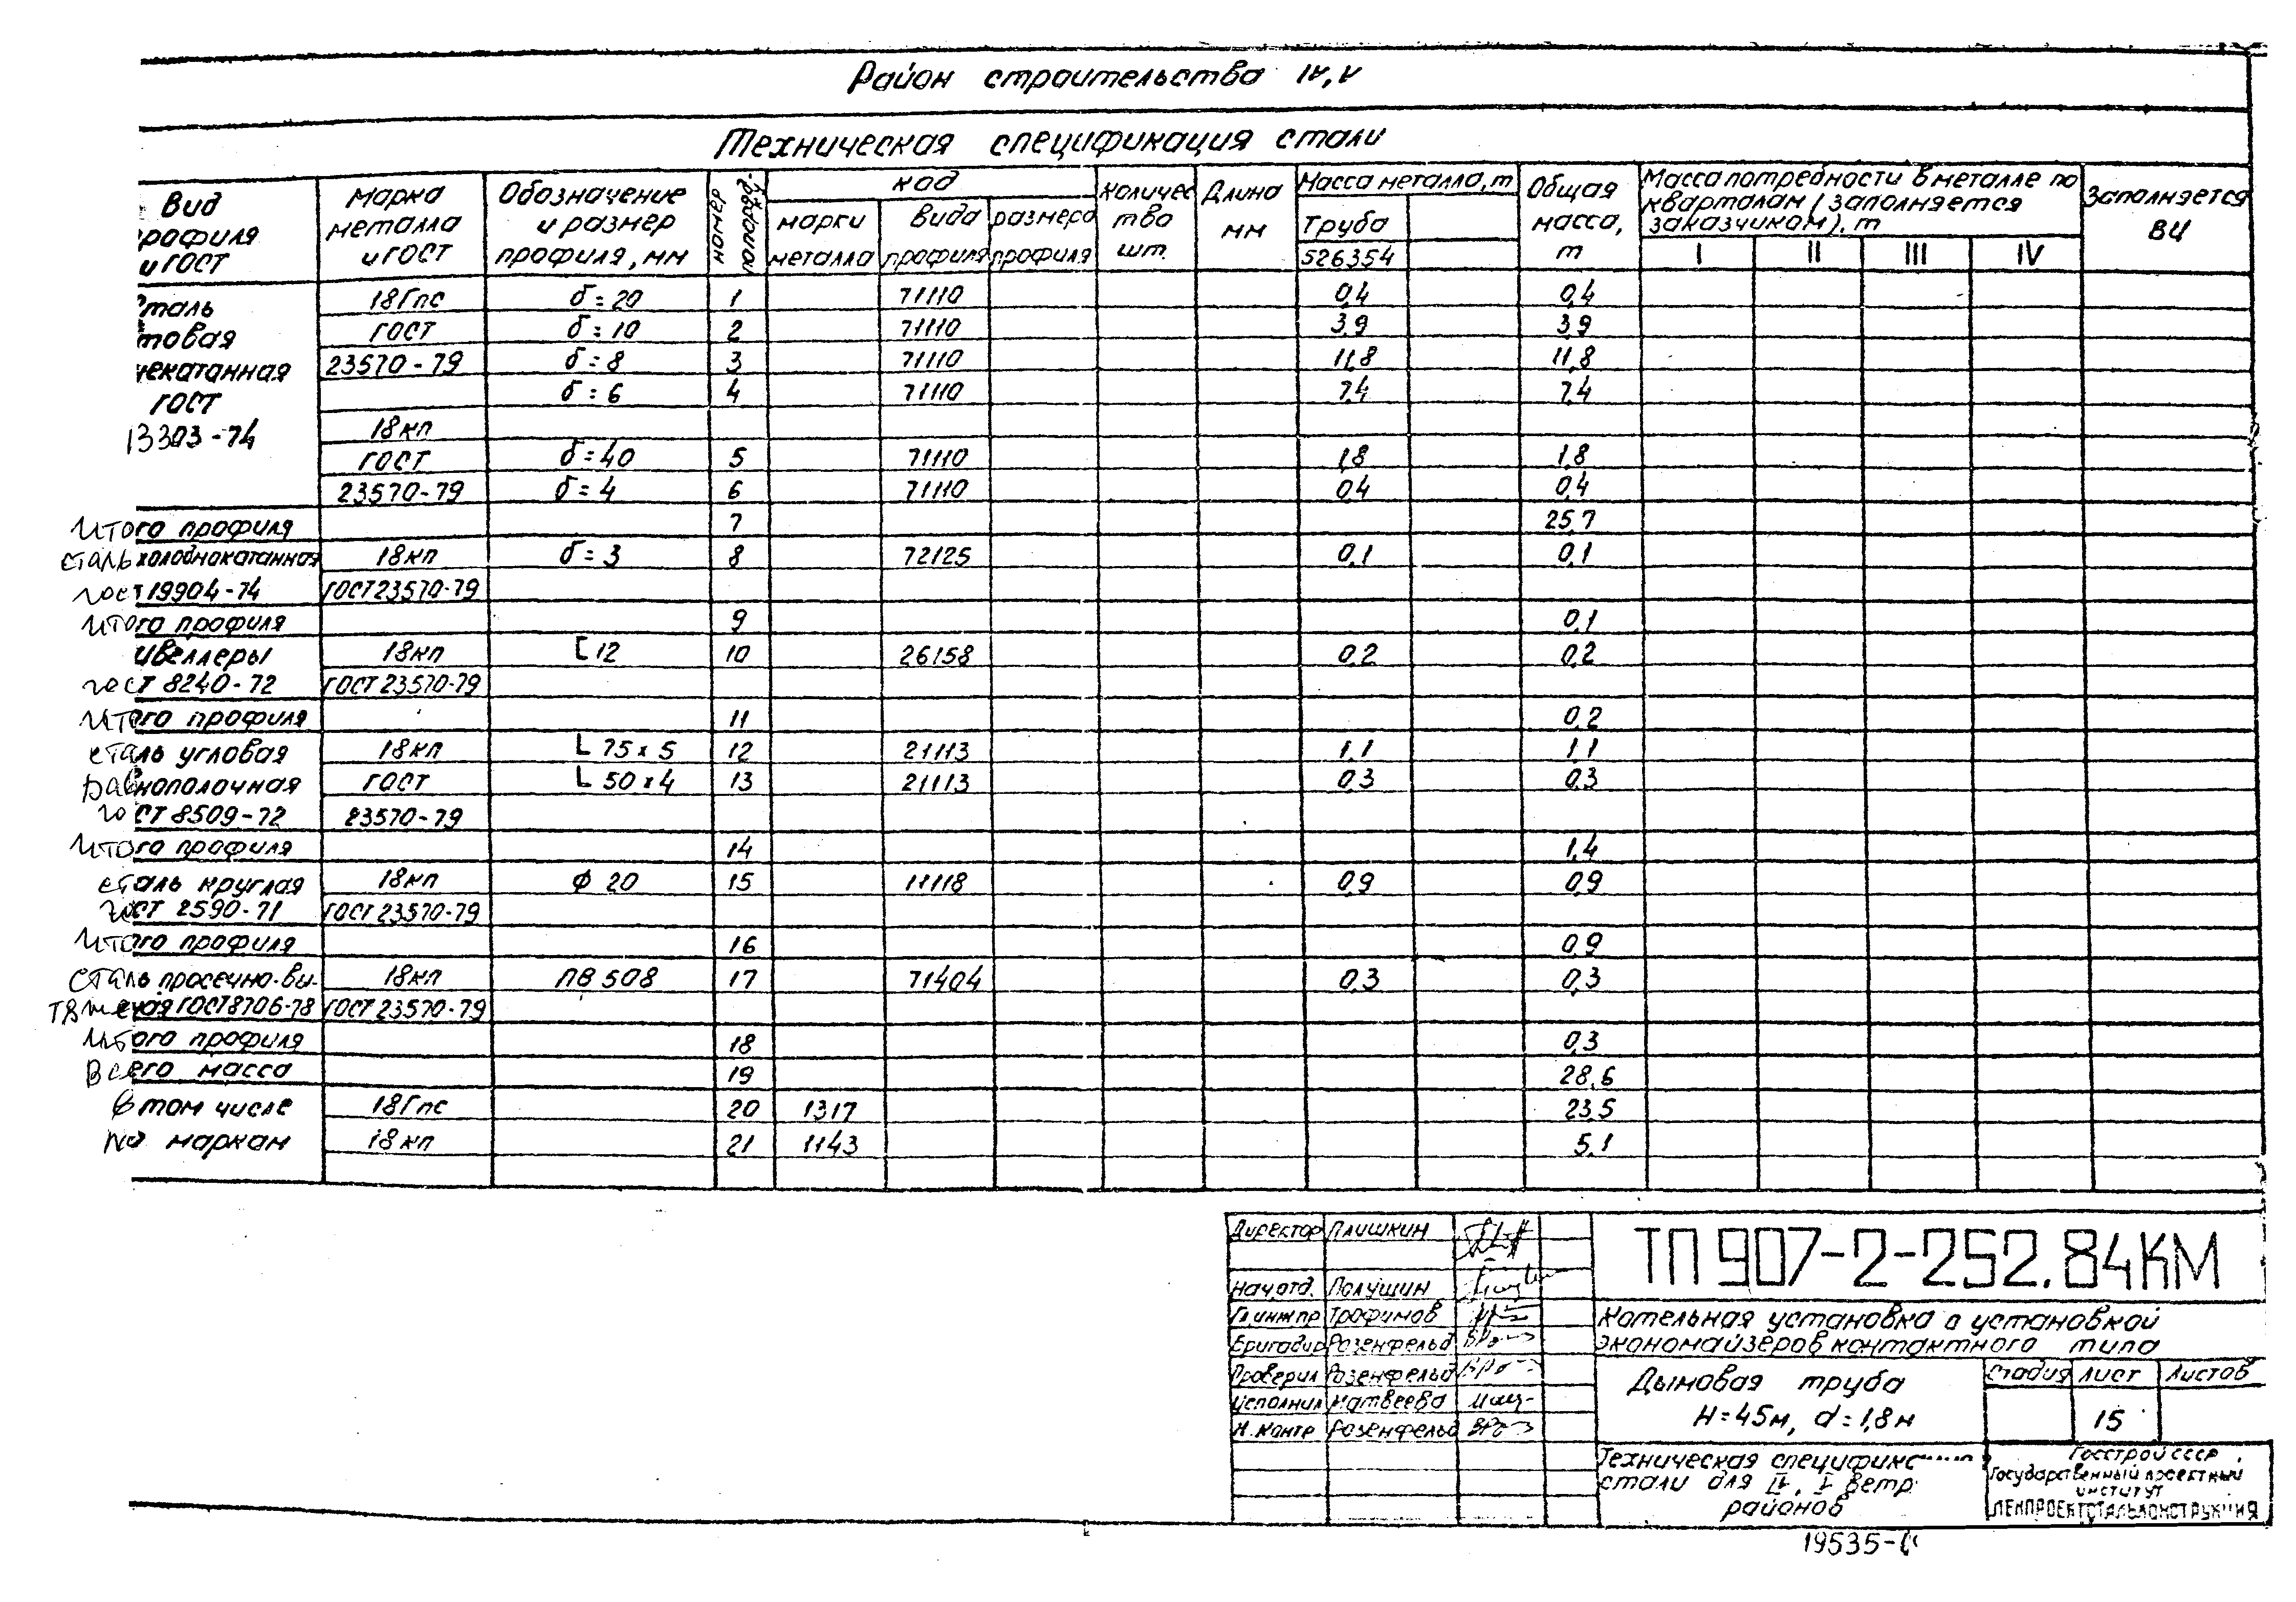 Район строительства IV, V
Техническая спецификация стали
Вид рофиля и ГОСТ | Марка металла и ГОСТ | Обозначение и размер профиля, мм | номер по поряд. | код | Количес тво шт. | Длина мм | Масса металла, т | Общая масса, т | Масса потребности в металле по кварталам (заполняется заказчиком), т | Заполняется ВЦ
марки металла | вида профиля | размера профиля | Труба | I | II | III | IV
526354
сталь | 18Гпс | δ=20 | 1 | 71110 | 0,4 | 0,4
товая | ГОСТ | δ=10 | 2 | 71110 | 3,9 | 3,9
чекатанная | 23570-79 | δ=8 | 3 | 71110 | 11,8 | 11,8
ГОСТ | δ=6 | 4 | 71110 | 7,4 | 7,4
13303-74 | 18кп
ГОСТ | δ=40 | 5 | 71110 | 1,8 | 1,8
23570-79 | δ=4 | 6 | 71110 | 0,4 | 0,4
Итого профиля | 7 | 25,7
сталь холоднокатанная | 18кп | δ=3 | 8 | 72125 | 0,1 | 0,1
гост 19904-74 | ГОСТ 23570-79
Итого профиля | 9 | 0,1
ивеллеры | 18кп | [ 12 | 10 | 26158 | 0,2 | 0,2
гост 8240-72 | ГОСТ 23570-79
Итого профиля | 11 | 0,2
сталь угловая | 18кп | L 75x5 | 12 | 21113 | 1,1 | 1,1
равнополочная | ГОСТ | L 50x4 | 13 | 21113 | 0,3 | 0,3
гост 8509-72 | 23570-79
Итого профиля | 14 | 1,4
сталь круглая | 18кп | ϕ 20 | 15 | 11118 | 0,9 | 0,9
гост 2590-71 | ГОСТ 23570-79
Итого профиля | 16 | 0,9
сталь просечно-вы- | 18кп | ПВ 508 | 17 | 71404 | 0,3 | 0,3
тяжная ГОСТ 8706-78 | ГОСТ 23570-79
Итого профиля | 18 | 0,3
Всего масса | 19 | 28,6
в том числе | 18Гпс | 20 | 1317 | 23,5
по маркам | 18кп | 21 | 1143 | 5,1
Директор Плишкин
Нач.отд. Полушин
Гл.инж.пр Трофимов
Бригадир Розенфельд
Проверил Розенфельд
Исполнил Матвеева
Н.контр Розенфельд
ТП 907-2-252.84КМ
Котельная установка с установкой
экономайзеров контактного типа
Дымовая труба
Н=45м, d=1,8м
Стадия | Лист | Листов
15
Техническая специфик
стали для IV, V ветр
районов
Госстрой СССР
Государственный проектный
институт
ЛЕНПРОЕКТСТАЛЬКОНСТРУКЦИЯ
19535-